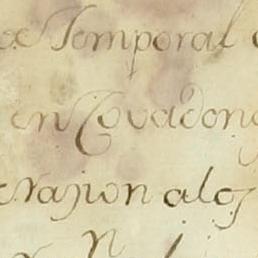 Temporal
en Covadong
erazion alos